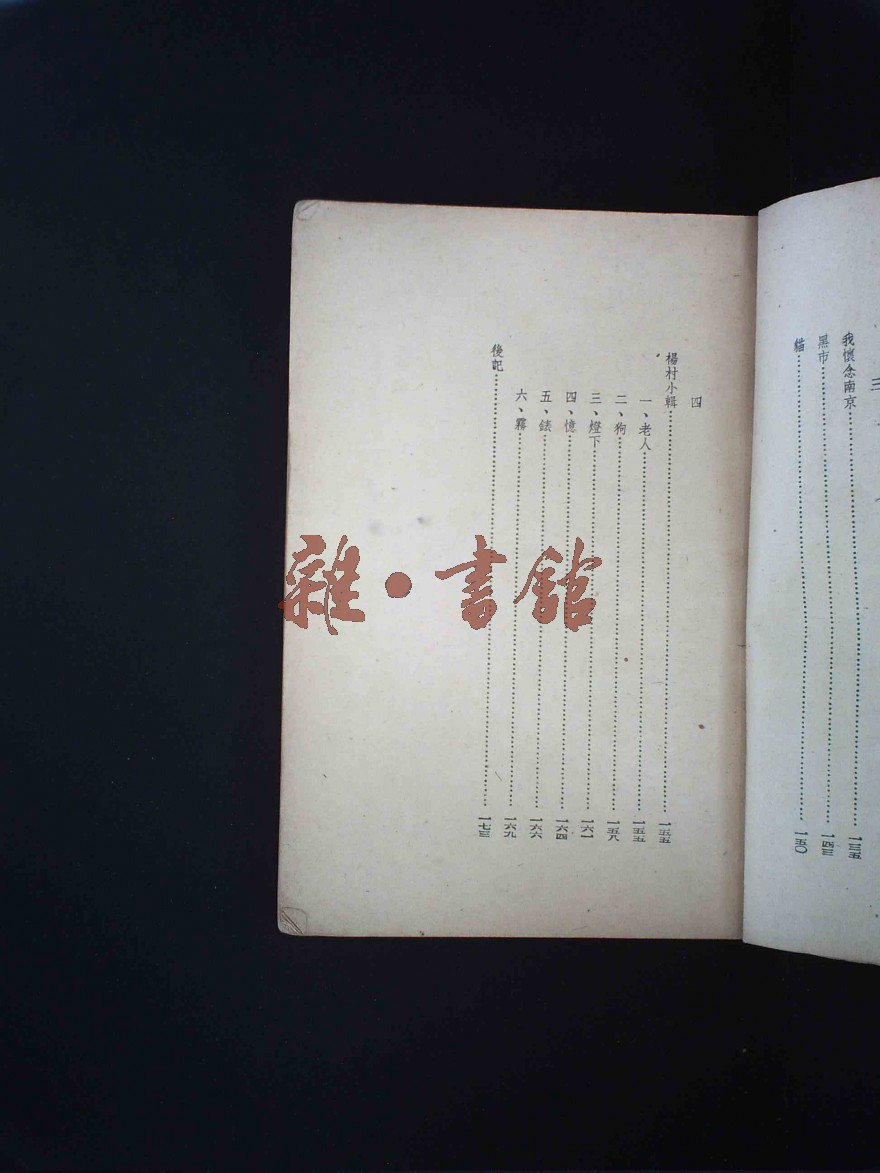 三
我懷念南京 一三五
黑市 一四三
貓 一五〇
四
楊村小輯 一五五
一、老人 一五五
二、狗 一五八
三、燈下 一六一
四、憶 一六四
五、錶 一六六
六、霧 一六九
後記 一七三
雜·書館